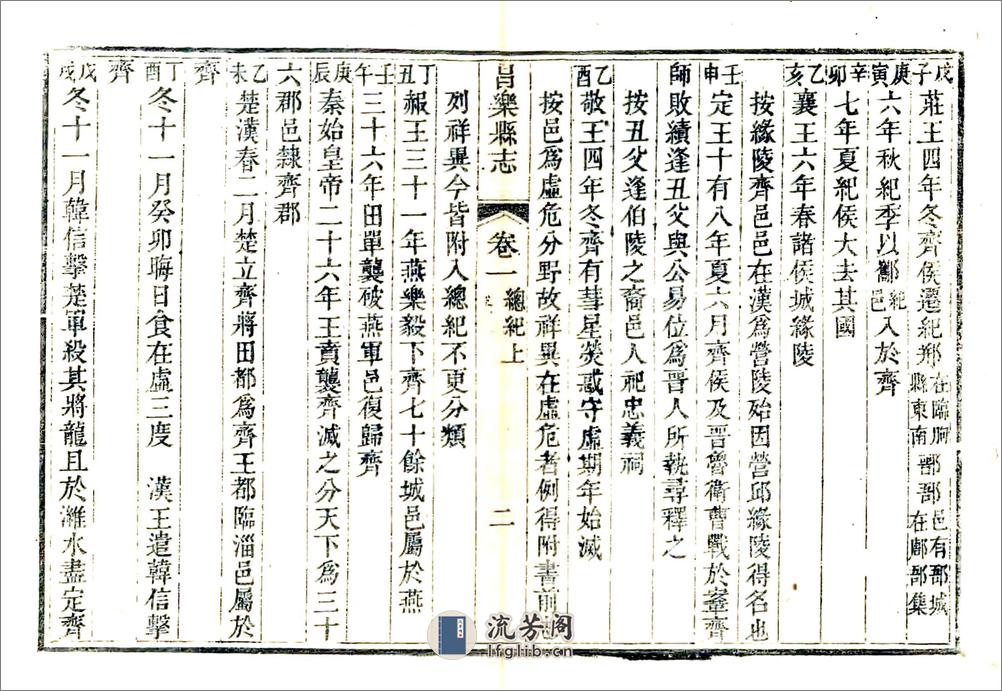 戊子莊王四年冬齊侯遷紀郱在臨朐縣東南鄑郚邑有鄑城在鄌郚集
庚寅六年秋紀季以酅紀邑入於齊
辛卯七年夏紀侯大去其國
乙亥襄王六年春諸侯城緣陵
按緣陵齊邑邑在漢爲營陵殆因營邱緣陵得名也
壬申定王十有八年夏六月齊侯及晉魯衛曹戰於鞌齊
師敗績逢丑父與公易位爲晉人所執尋釋之
按丑父逢伯陵之裔邑人祀忠義祠
乙酉敬王四年冬齊有彗星熒惑守虛期年始滅
按邑爲虛危分野故祥異在虛危者例得附書前
昌樂縣志 卷一 總紀上 二
列祥異今皆附入總紀不更分類
丁丑赧王三十一年燕樂毅下齊七十餘城邑屬於燕
壬午三十六年田單襲破燕軍邑復歸齊
庚辰秦始皇帝二十六年王賁襲齊滅之分天下爲三十
六郡邑隸齊郡
乙未楚漢春二月楚立齊將田都爲齊王都臨淄邑屬於
齊
丁酉冬十一月癸卯晦日食在虛三度 漢王遣韓信擊
齊
戊戌冬十一月韓信擊楚軍殺其將龍且於濰水盡定齊
流芳阁
lfglib.cn